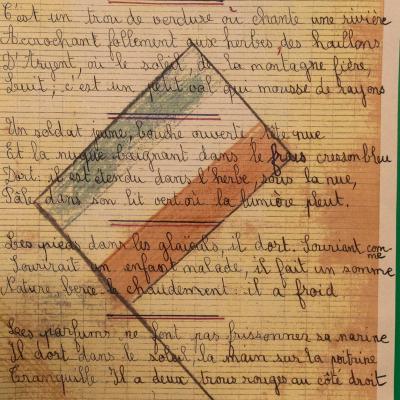 C'est un trou de verdure où chante une rivière
Accrochant follement aux herbes des haillons
D'Argent, où le soleil de la montagne fière,
Luit, c'est un petit val qui mousse de rayons
Un soldat jeune, bouche ouverte, tête nue
Et la nuque baignant dans le frais cresson bleu
Dort: il est étendu dans l'herbe, sous la nue,
Pâle dans son lit vert où la lumière pleut.
Les pieds dans les glaïeuls, il dort. Souriant comme
Sourirait un enfant malade, il fait un somme
Nature berce-le chaudement: il a froid
Les parfums ne font pas frissonner sa narine
Il dort dans le soleil, la main sur la poitrine
Tranquille. Il a deux trous rouges au côté droit